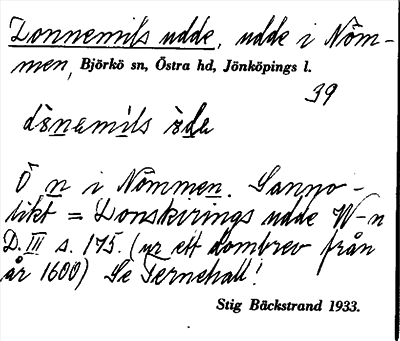 Donnemils udde, udde i Nöm-
men, Björkö sn, Östra hd, Jönköpings l.
39
Ö n i Nömmen. Sanno-
likt = Donskirings udde W-n
D. III s. 175. (ur ett dombrev från
år 1600) Se Fernehall!
Stig Bäckstrand 1933.